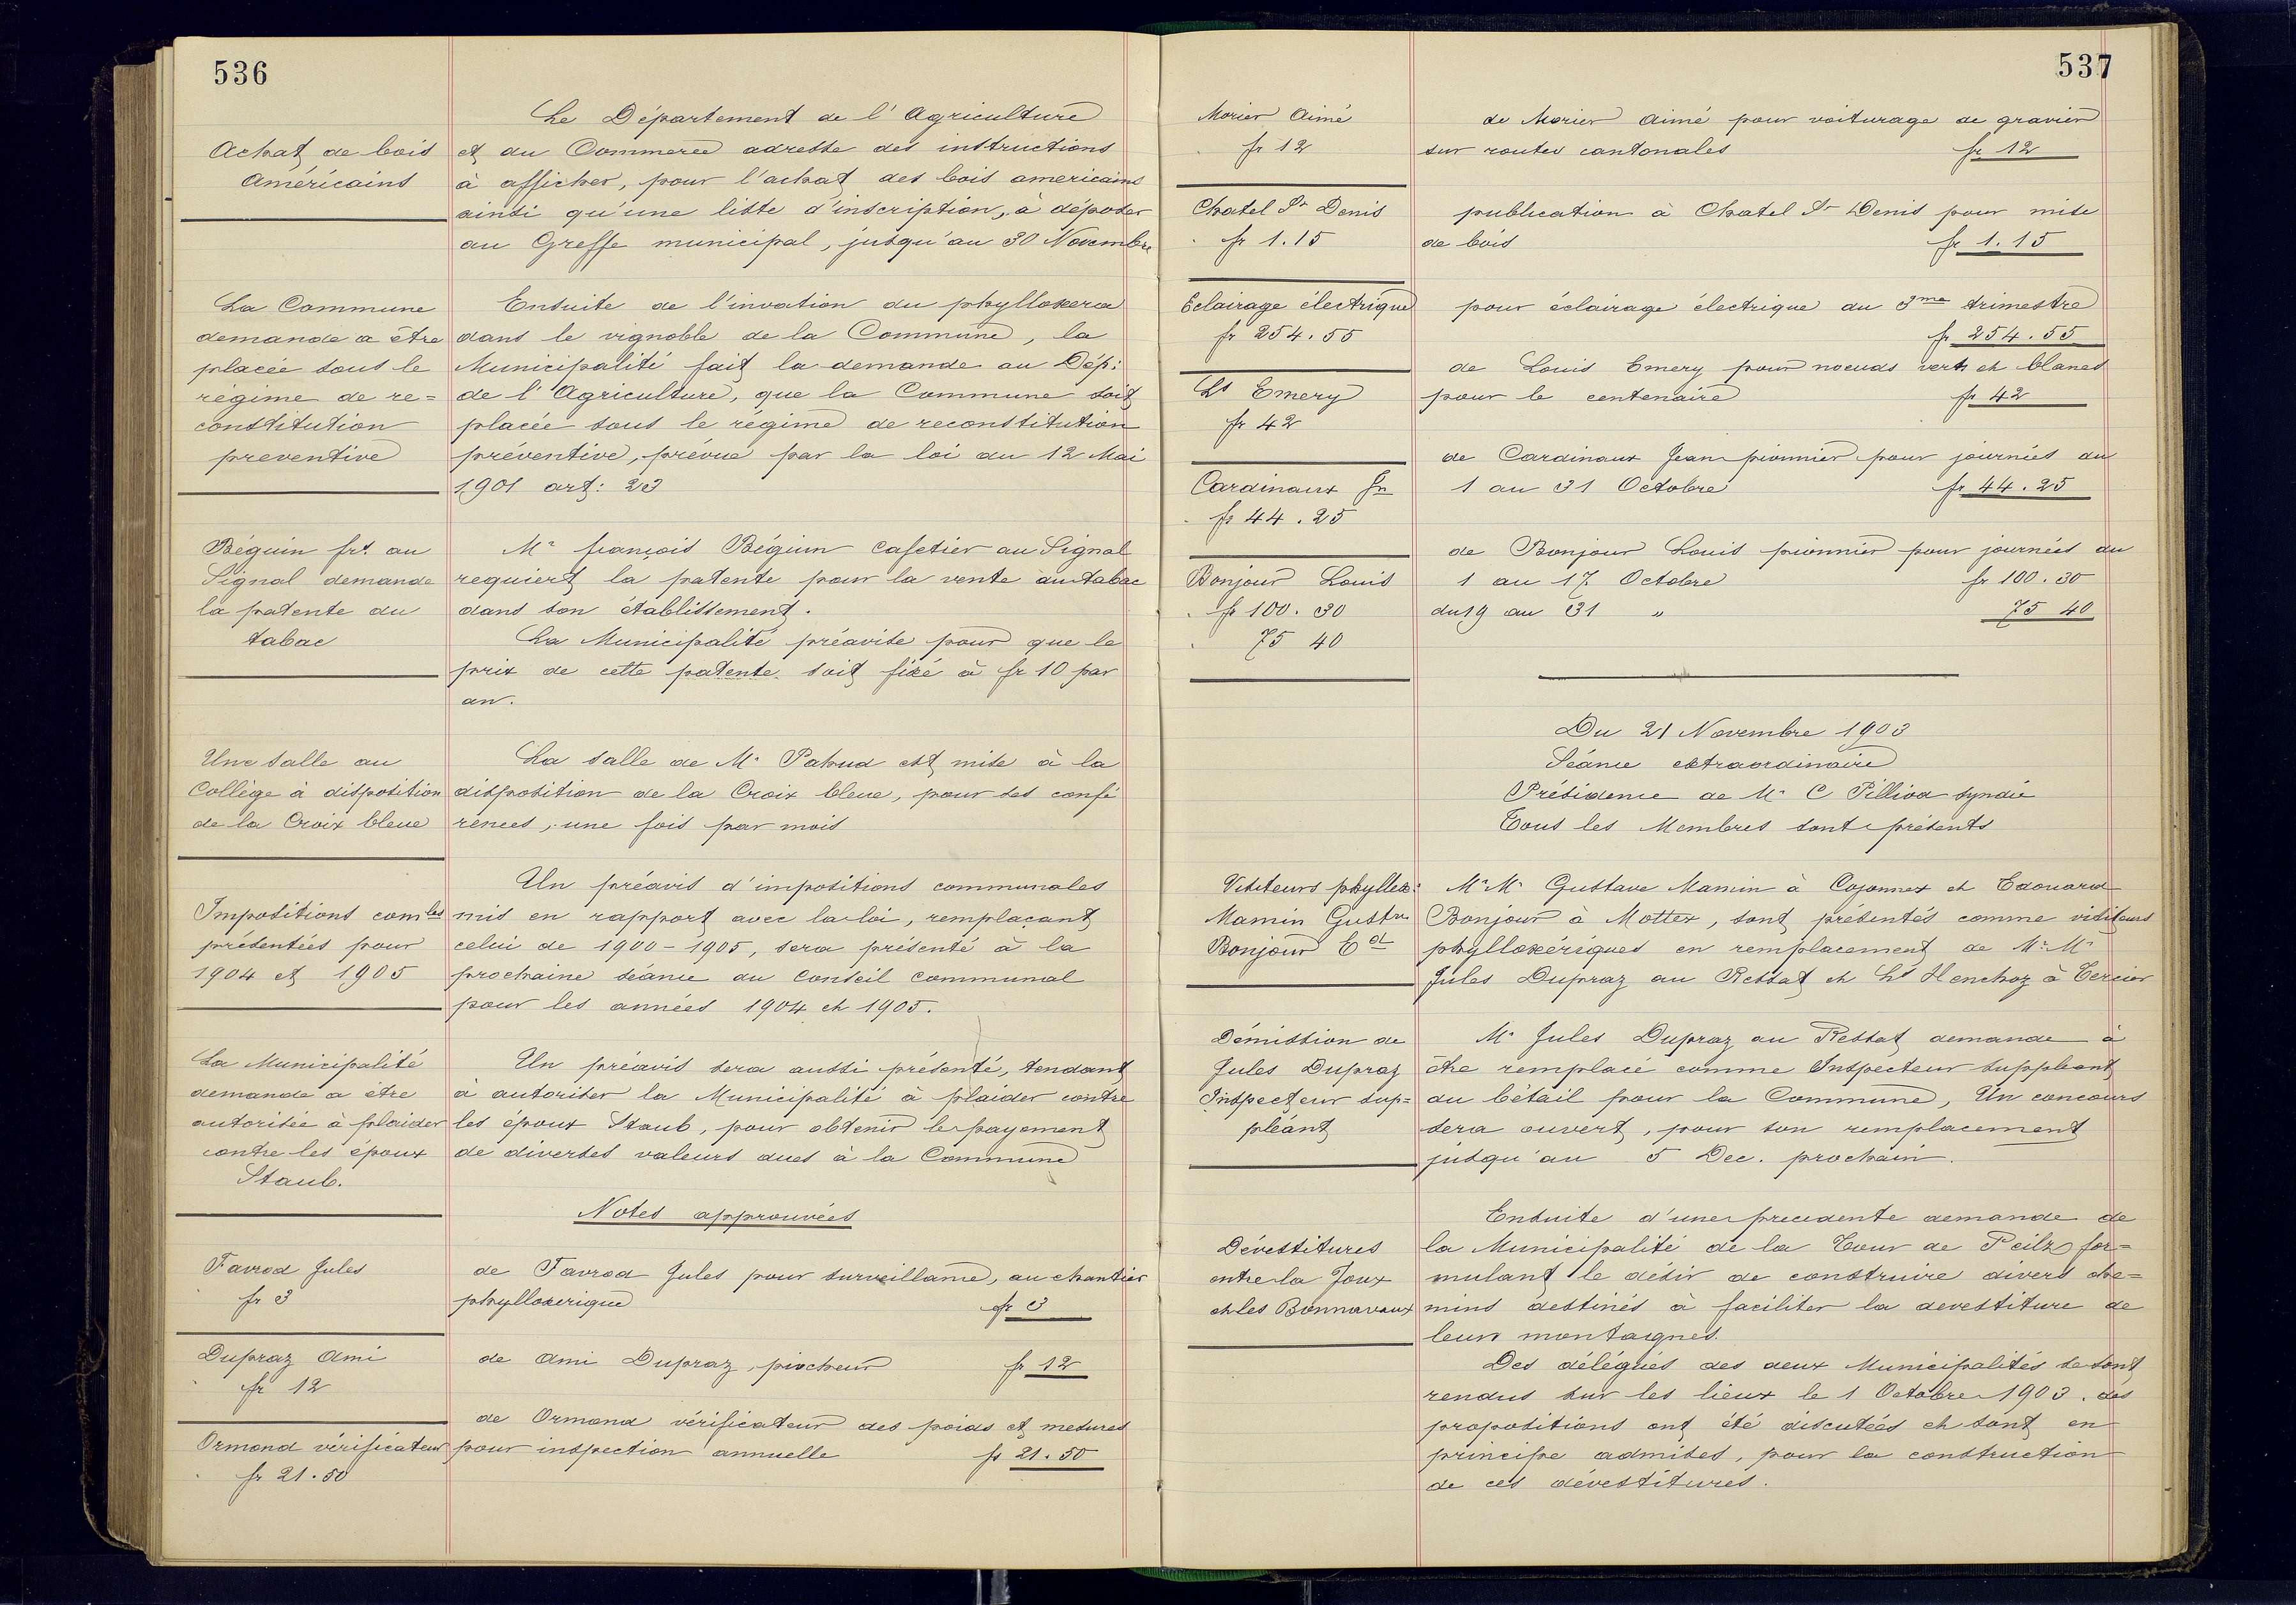 536
Achat de bois
Américains
Le Département de l'Agriculture
et du Commerce adresse des instructions
à afficher, pour l'achat des bois americains
ainsi qu'une liste d'inscription, à déposer
au Greffe municipal, jusqu'au 30 Novembre
La Commune
demande a être
placée sous le
régime de re=
constitution
preventive
Ensuite de l'invation du phylloxera
dans le vignoble de la Commune, la
Municipalité fait la demande au Dép:
de l'Agriculture, que la Commune soit
placée sous le régime de reconstitution
préventive, prévue par la loi du 12 Mai
1901 art: 23
Béguin frs. au
Signal demande
la patente du
tabac
Mr françois Béguin cafetier au Signal
requiert la patente pour la vente du tabac
dans son établissement.
La Municipalité préavise pour que le
prix de cette patente soit fixé à fr 10 par
an.
Une salle au
Collège à disposition
de la Croix bleue
La salle de Mr Pahud est mise à la
disposition de la Croix bleue, pour ses confé
rences, une fois par mois
Impositions comles
présentées pour
1904 et 1905
Un préavis d'impositions communales
mis en rapport avec la loi, remplaçant
celui de 1900-1905, sera présenté à la
prochaine séance du Conseil communal
pour les années 1904 et 1905.
La Municipalité
demande a être
autorisée à plaider
contre les époux
Staub.
Un préavis sera aussi présenté, tendant
à autoriser la Municipalité à plaider contre
les époux Staub, pour obtenir le payement
de diverses valeurs dues à la Commune
Notes approuvées
Favrod Jules
fr 3
de Favrod Jules pour surveillance, au chantier
phylloxerique fr 3
Dupraz Ami
fr 12
de Ami Dupraz, piocheur fr 12
Ormond vérificateur
fr 21.50
de Ormond vérificateur des poids et mesures
pour inspection annuelle fr 21.50
537
Morier Aimé
fr 12
de Morier Aimé pour voiturage de gravier
sur routes cantonales fr 12
Chatel St Denis
fr 1.15
publication à Chatel St Denis pour mise
de bois fr 1.15
Eclairage électrique
fr 254.55
pour éclairage électrique du 3me trimestre
fr 254.55
Ls Emery
fr 42
de Louis Emery pour noeuds verts et blancs
pour le centenaire fr 42
Cardinaux Jn
fr 44.25
de Cardinaux Jean pionnier pour journées du
1 au 31 Octobre fr 44.25
Bonjour Louis
fr 100.30
75 40
de Bonjour Louis pionnier pour journées du
1 au 17 Octobre fr 100.30
du 19 au 31 " 75 40
Du 21 Novembre 1903
Séance extraordinaire
Présidence de Mr C Pilliod syndic
Tous les Membres sont présents
Visiteurs phyllox:
Mamin Gustve
Bonjour Ed
Mr Mr Gustave Mamin à Cojonnex et Edouard
Bonjour à Mottex, sont présentés comme visiteurs
phylloxériques en remplacement de Mr Mr
Jules Dupraz au Ressat et Ls Henchoz à Tercier
Démission de
Jules Dupraz
Inspecteur sup=
pléant
Mr Jules Dupraz au Ressat demande à
être remplacé comme Inspecteur suppleant
du bétail pour la Commune, Un concours
sera ouvert, pour son remplacement
jusqu'au 5 Dec. prochain.
Dévestitures
entre la Joux
et les Bonnavaux
Ensuite d'une precedente demande de
la Municipalité de la Tour de Peilz for=
mulant le désir de construire divers che=
mins destinés à faciliter la devestiture de
leurs montagnes.
Des délégués des deux Municipalités se sont
rendus sur les lieux le 1 Octobre 1903. des
propositions ont été discutées et sont en
principe admises, pour la construction
de ces dévestitures.